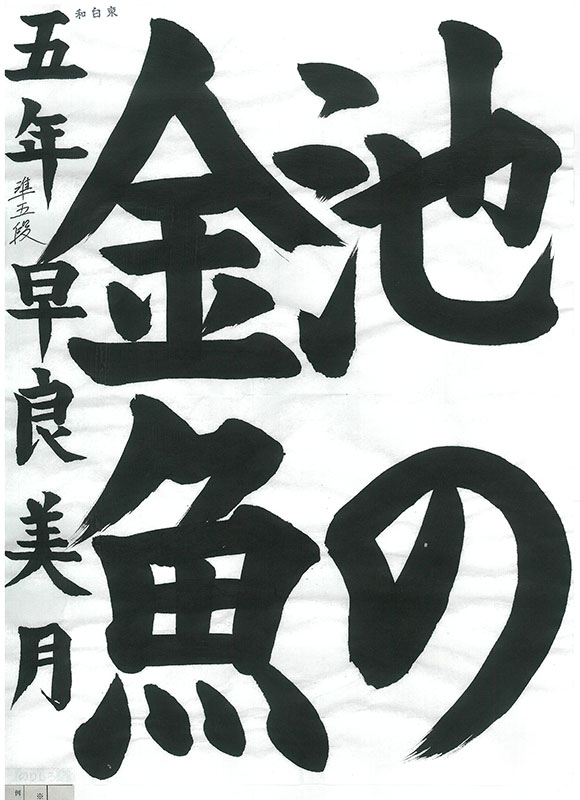 池の
金魚
五年 準五段 早良美月
和白東
例 ※